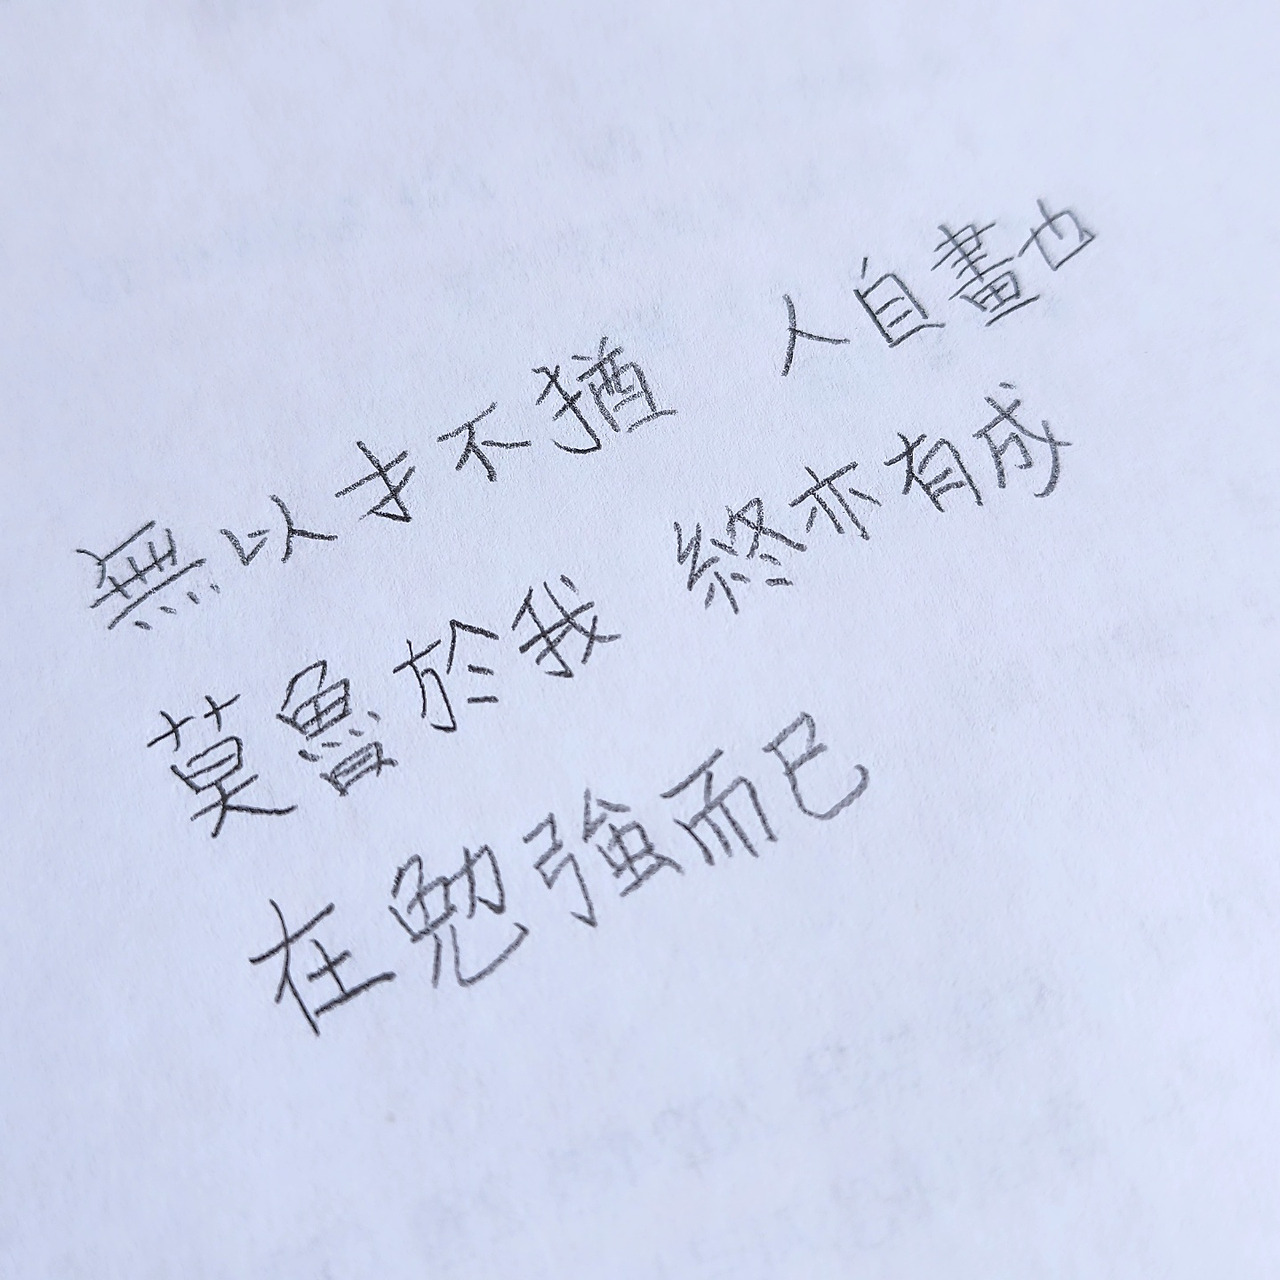 無以才不猶 人自畫也
莫魯於我 終亦有成
在勉強而已